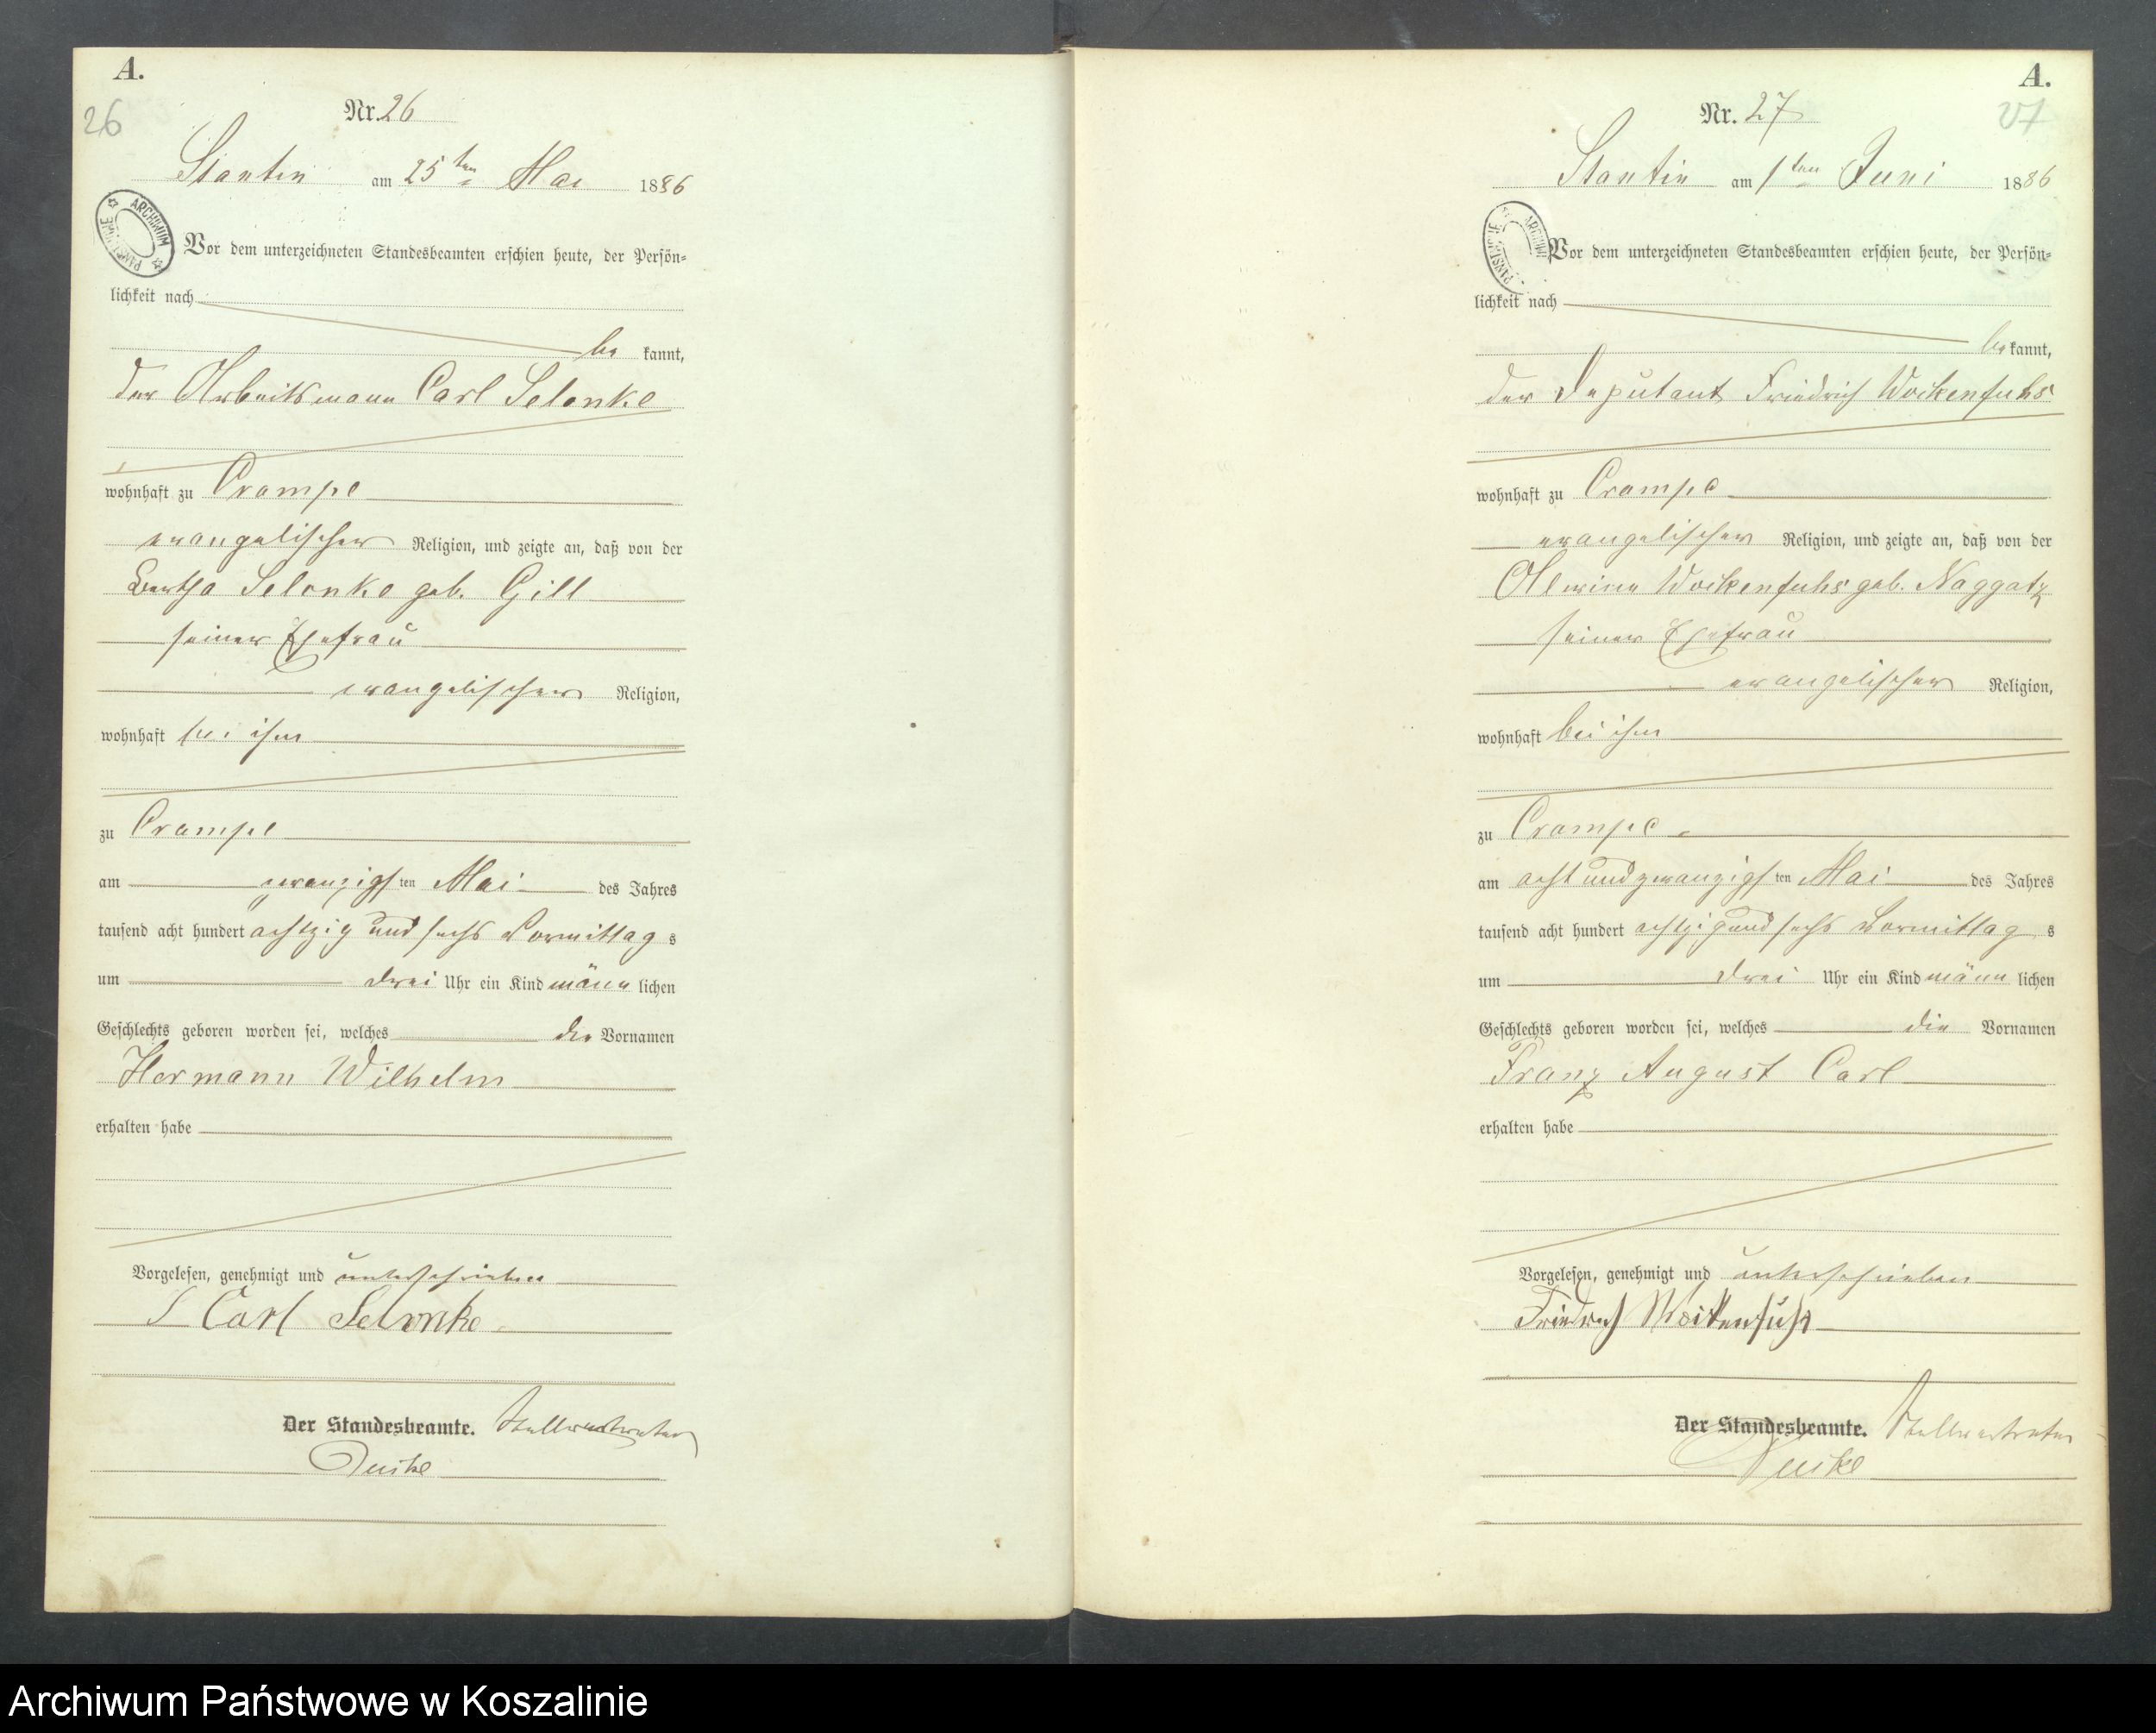 A.
26
Nr. 26
Stantin am 25ten Mai 1886
ARCHIWUM PAŃSTWOWE
Vor dem unterzeichneten Standesbeamten erschien heute, der Persön=
lichkeit nach
be kannt,
der Arbeitsmann Carl Selonke
wohnhaft zu Crampe
evangelischer Religion, und zeigte an, daß von der
Bertha Selonke geb. Gill
seiner Ehefrau
evangelischer Religion,
wohnhaft bei ihm
zu Crampe
am zwanzigsten Mai des Jahres
tausend acht hundert achtzig und sechs Vormittag s
um drei Uhr ein Kind männ lichen
Geschlechts geboren worden sei, welches die Vornamen
Hermann Wilhelm
erhalten habe
Vorgelesen, genehmigt und unterschrieben
Carl Selonke
Der Standesbeamte. Stellvertreter
A.
27
Nr. 27
Stantin am 1ten Juni 1886
ARCHIWUM PAŃSTWOWE
Vor dem unterzeichneten Standesbeamten erschien heute, der Persön=
lichkeit nach
be kannt,
der Deputant Friedrich Wockenfuhs
wohnhaft zu Crampe
evangelischer Religion, und zeigte an, daß von der
Alwine Wockenfuhs geb. Naggatz
seiner Ehefrau
evangelischer Religion,
wohnhaft bei ihm
zu Crampe
am acht und zwanzigsten Mai des Jahres
tausend acht hundert achtzig und sechs Vormittag s
um drei Uhr ein Kind männ lichen
Geschlechts geboren worden sei, welches die Vornamen
Franz August Carl
erhalten habe
Vorgelesen, genehmigt und unterschrieben
Friedrich Wockenfuhs
Der Standesbeamte. Stellvertreter
Archiwum Państwowe w Koszalinie